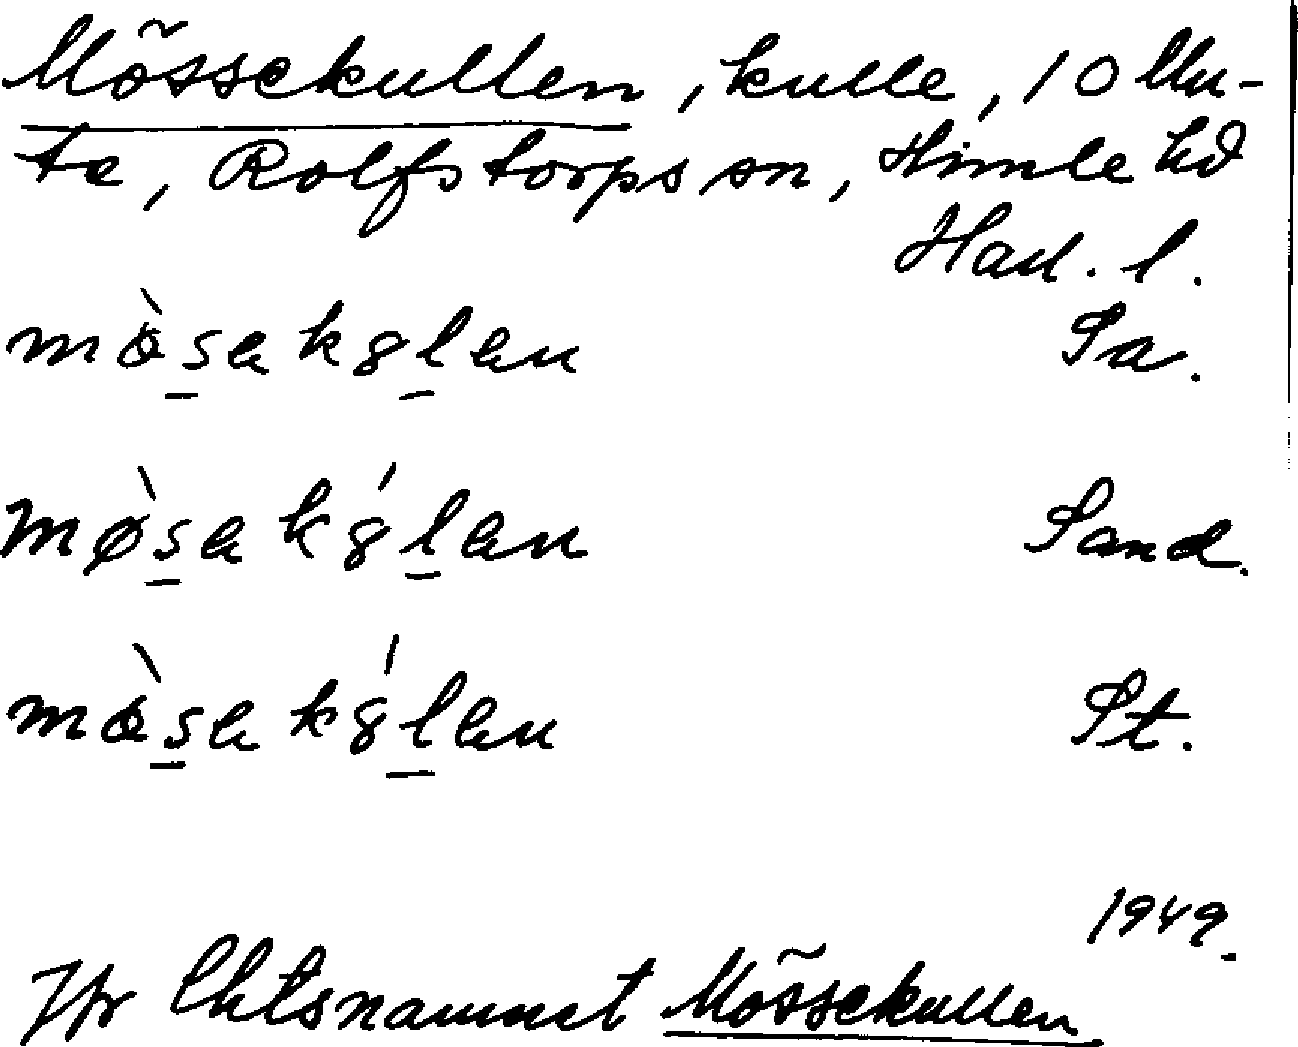 Mössekullen, kulle, 10 Mu-
te, Rolfstorps sn, Himle hd
Hall. l.
mò̵sa k8lan Sa.
mø̀sa k8́lan Sand.
mò̵sa k8́lan St.
1949.
Jfr Ehtsnamnet Mössekullen